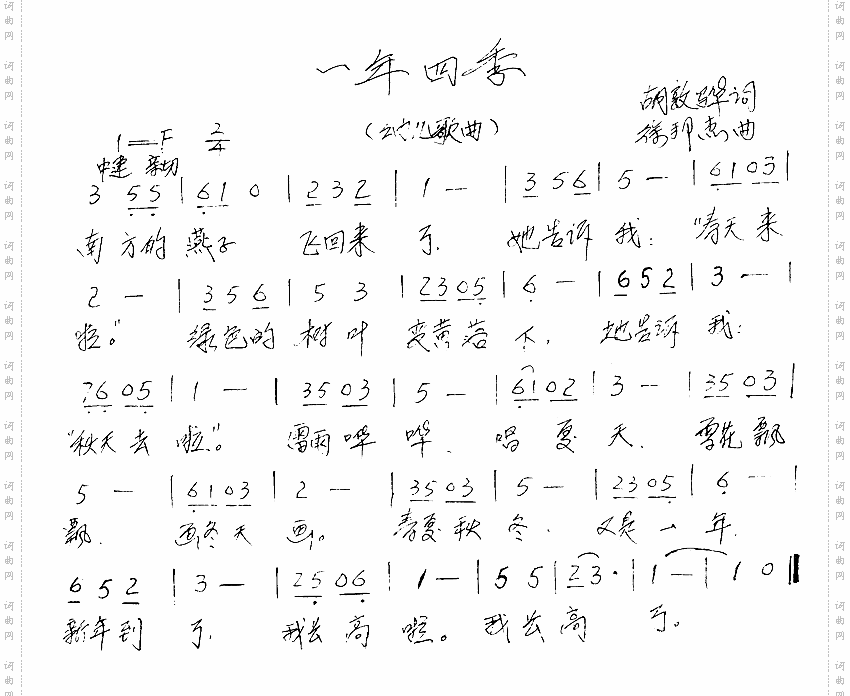 一年四季
（幼儿歌曲）
胡敦骅词
徐邦杰曲
1=F 2/4
中速 亲切
3 5 5 | 6 1 0 | 2 3 2 | 1 — | 3 5 6 | 5 — | 6 1 0 3 |
南方的燕子 飞回来 了. 她告诉 我： “春天来
2 — | 3 5 6 | 5 3 | 2 3 0 5 | 6 — | 6 5 2 | 3 — |
啦。” 绿色的 树叶 变黄落 下, 她告诉 我：
7 6 0 5 | 1 — | 3 5 0 3 | 5 — | 6 1 0 2 | 3 — | 3 5 0 3 |
“秋天去 啦”。 雷雨哗 哗、 唱夏 天、 雪花飘
5 — | 6 1 0 3 | 2 — | 3 5 0 3 | 5 — | 2 3 0 5 | 6 — |
飘、 画冬天 画。 春夏秋 冬. 又是一 年.
6 5 2 | 3 — | 2 5 0 6 | 1 — | 5 5 | 2 3 · | 1 — | 1 0 ‖
新年到 了. 我长高 啦。 我长高 了。
词曲网